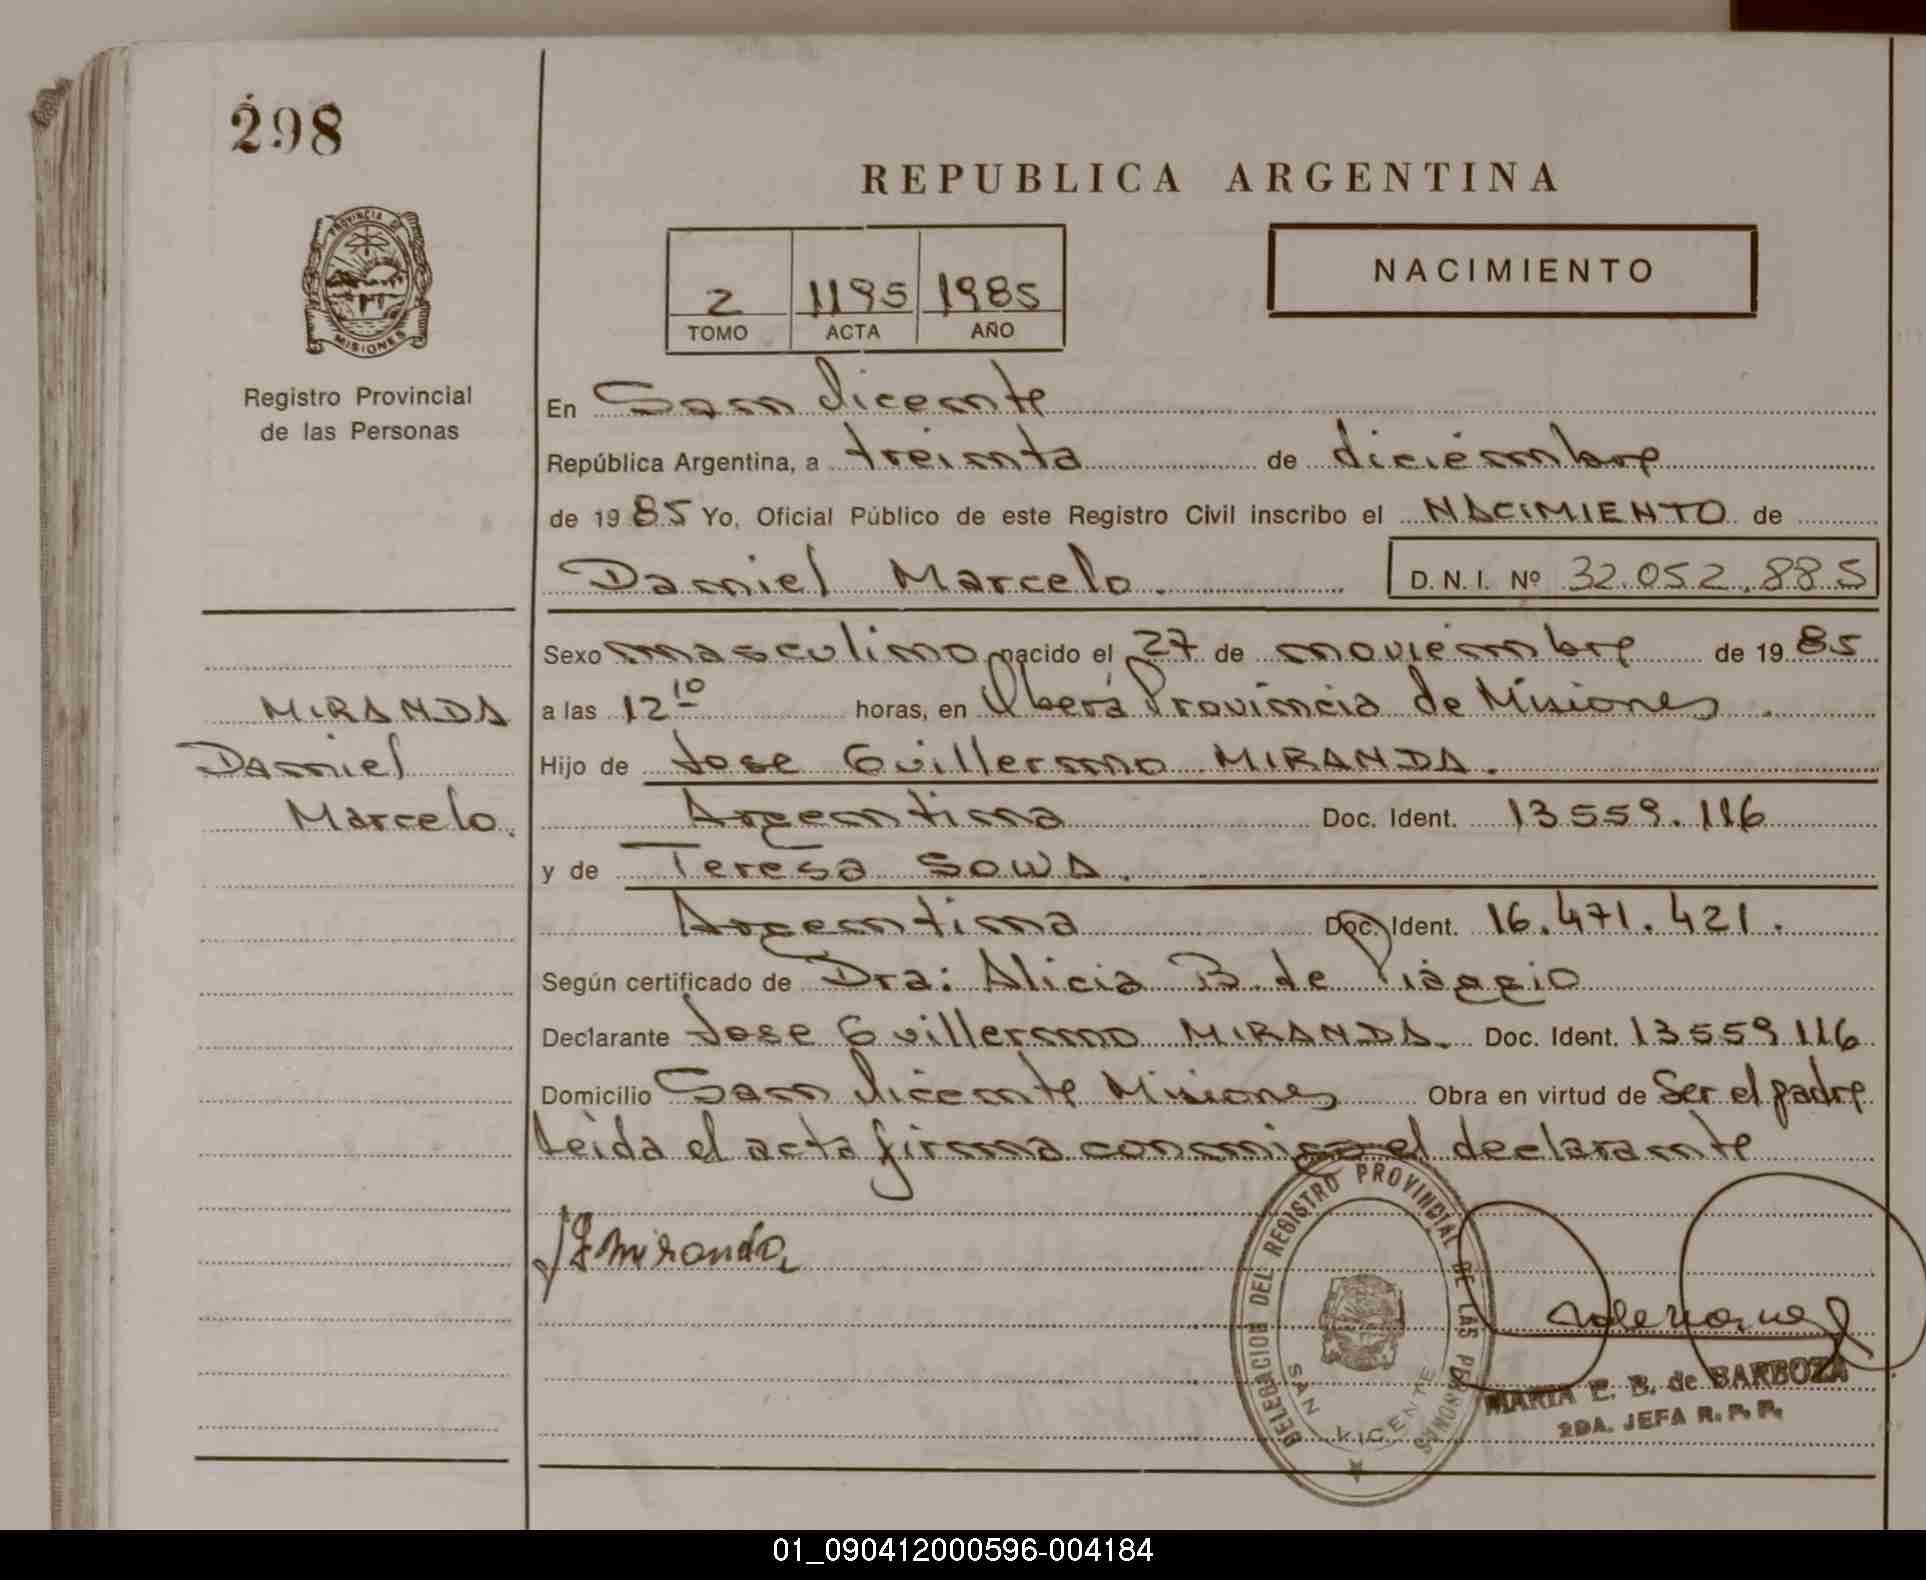 298
REPUBLICA ARGENTINA
PROVINCIA DE
MISIONES
Registro Provincial
de las Personas
2 1195 1985
TOMO ACTA AÑO
NACIMIENTO
En San Vicente
República Argentina, a treinta de diciembre
de 1985 Yo, Oficial Público de este Registro Civil inscribo el NACIMIENTO de
Daniel Marcelo. D.N.I. Nº 32.052.885
MIRANDA
Daniel
Marcelo.
Sexo masculino nacido el 27 de noviembre de 1985
a las 12 10 horas, en Oberá Provincia de Misiones.
Hijo de Jose Guillermo MIRANDA.
Argentina Doc. Ident. 13559.116
y de Teresa SOWA.
Argentina Doc. Ident. 16.471.421.
Según certificado de Dra: Alicia B. de Piaggio
Declarante Jose Guillermo MIRANDA. Doc. Ident. 13559116
Domicilio San Vicente Misiones Obra en virtud de Ser el padre
Leida el acta firma conmigo el declarante
JG Miranda
DELEGACION DEL REGISTRO PROVINCIAL DE LAS PERSONAS
SAN VICENTE
MARIA E. B. de BARBOZA
2DA. JEFA R. P. P.
01_090412000596-004184